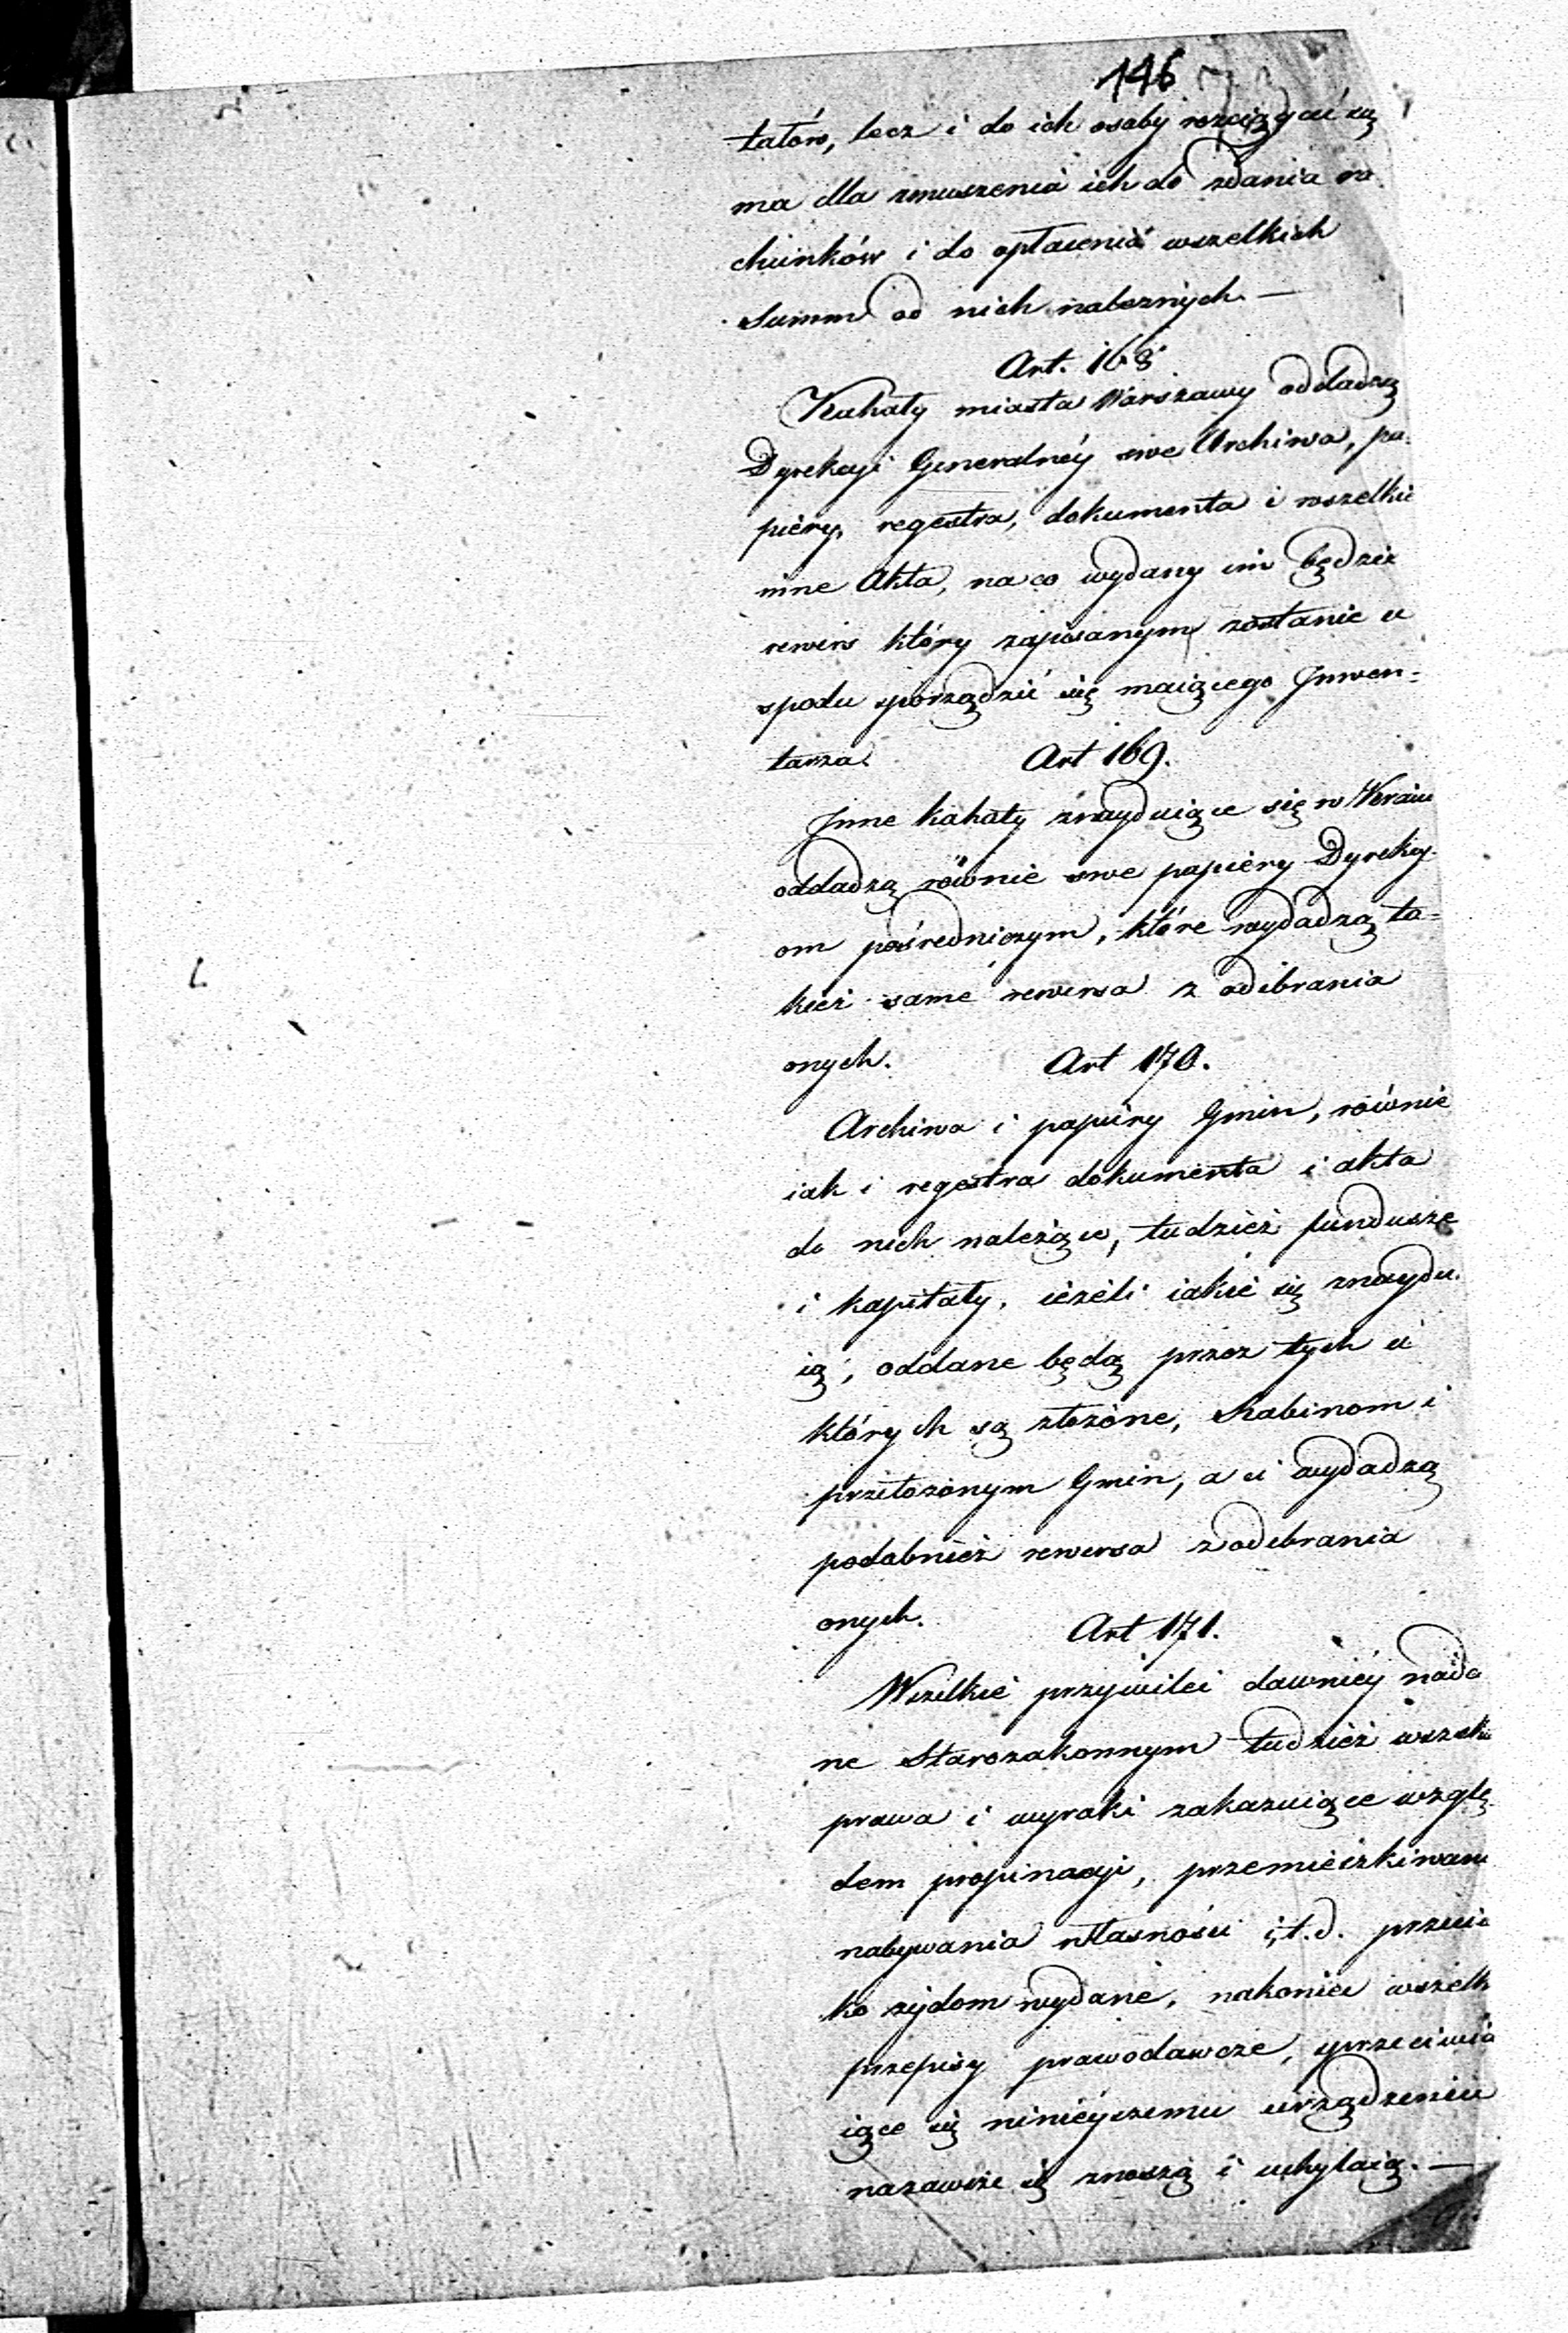 146
tałów, lecz i do ich osoby rozciągać się
ma dla zmuszenia ich do zdania ra
chunków i do opłacenia wszelkich
Summ od nich należnych. —
Art. 168
Kahały miasta Warszawy oddadzą
Dyrekcyi Generalnéy swe Archiwa, pa-
piéry, regestra, dokumenta i wszelkie
inne Akta, na co wydany im będzie
rewers który zapisanym zostanie u
spodu sporządzić się maiącego Inwen=
tarza.
Art 169.
Inne kahały znayduiące się w Kraiu
oddadzą równie swe papiéry Dyrekcy-
om pośredniczym, które wydadzą ta=
kież same rewersa z odebrania
onych.
Art 170.
Archiwa i papiéry Gmin, równie
iak i regestra dokumenta i akta
do nich należące, tudzież fundusze
i kapitały, ieżeli iakie się znaydu-
ią, oddane będą przez tych u
których są złożone, Rabinom i
przełożonym Gmin, a ci wydadzą
podobnież rewersa z odebrania
onych.
Art 171.
Wszelkie przywilei dawniéy nada
ne Starozakonnym tudzież wszelkie
prawa i wyroki zakazuiące wzglę
dem propinacyi, przemieszkiwani
nabywania własności i,t.d. przeciw
ko żydom wydane, nakoniec wszelk
przepisy prawodawcze, sprzeciwia
iące się ninieyszemu urządzeniu
nazawsze się znoszą i uchylaią. —